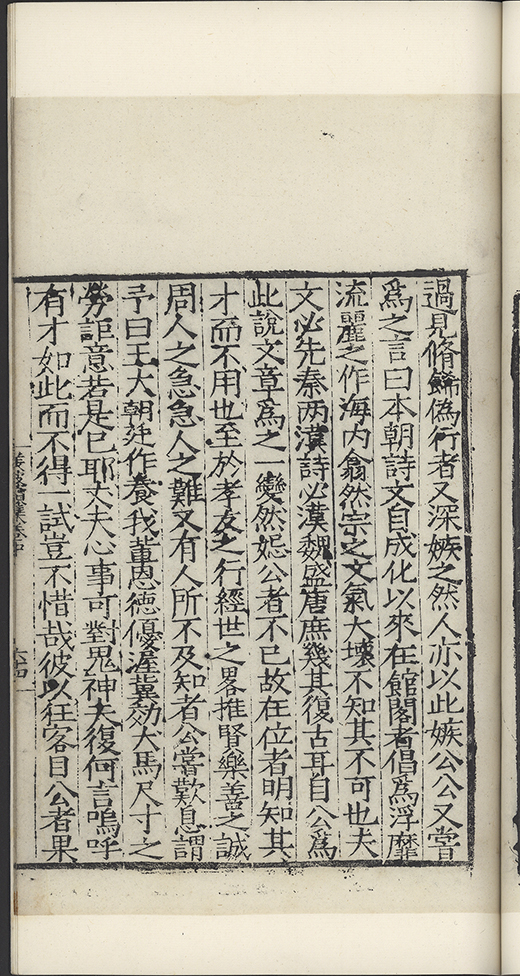 過見脩餙偽行者又深嫉之然人亦以此嫉公公又嘗
為之言曰本朝詩文自成化以來在館閣者倡為浮靡
流麗之作海內翕然宗之文氣大壞不知其不可也夫
文必先秦两漢詩必漢魏盛唐庶幾其復古耳自公為
此說文章為之一變然忌公者不已故在位者明知其
才而不用也至於孝友之行經世之畧推賢樂善之誠
周人之急急人之難又有人所不及知者公嘗歎息謂
予曰王大朝廷作養我董恩德優渥冀効犬馬尺寸之
勞詎意若是已耶丈夫心事可對鬼神夫復何言嗚呼
有才如此而不得一試豈不惜哉彼以狂客目公者果
六四